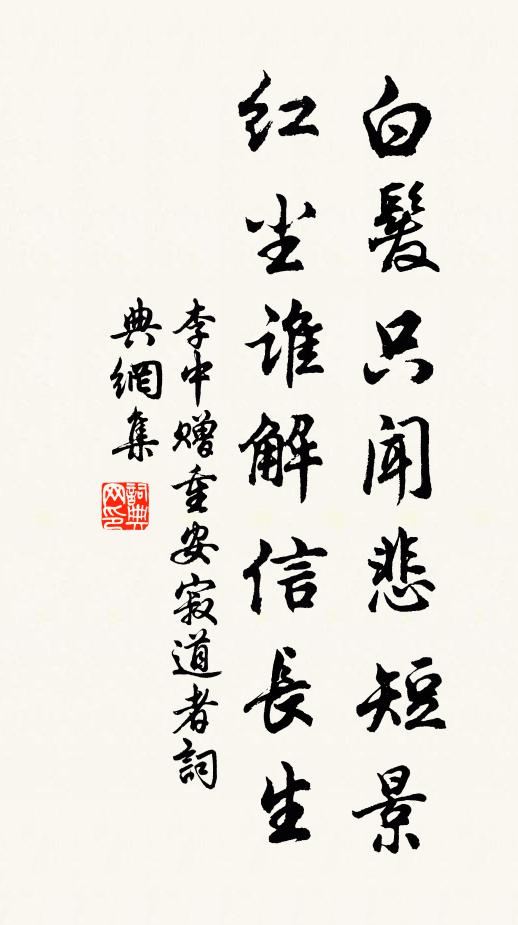 白髮只聞悲短景
红尘谁解信長生
李中赠重安寂道者詞
典網集
詞典网印